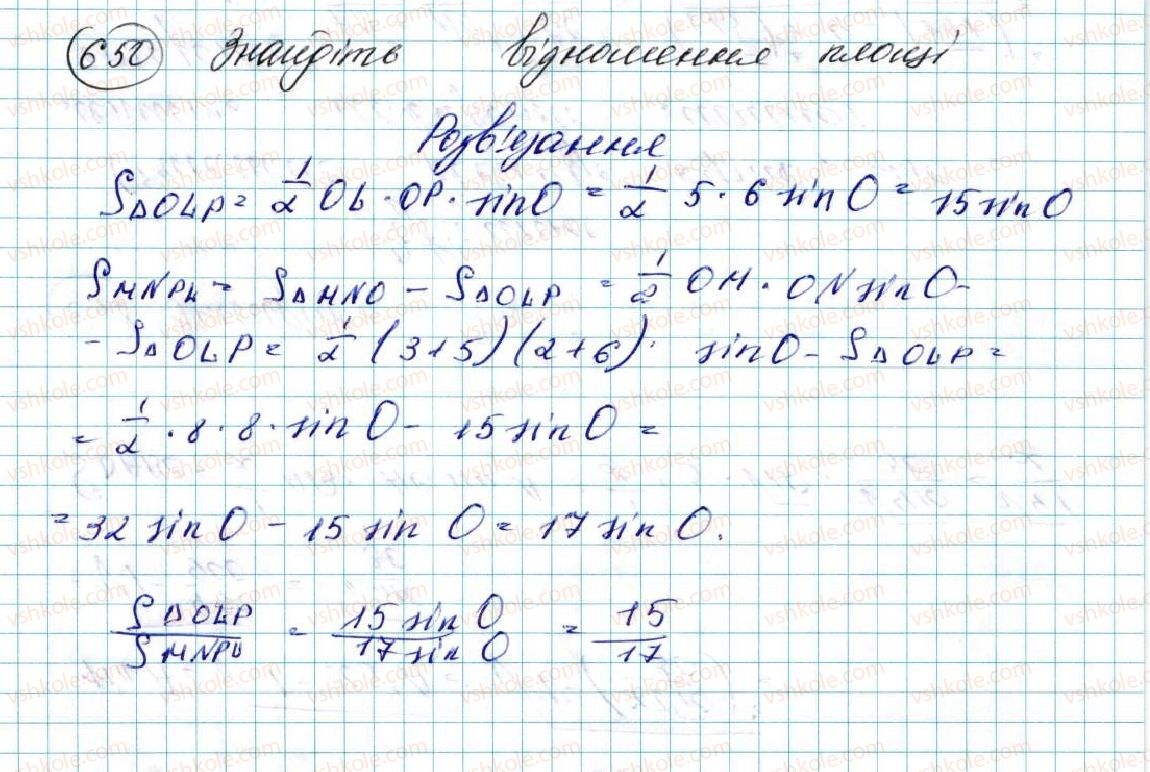 650 Знайдіть відношення площі
Розв'язання
S△OLP = 1/2 OL · OP · sin O = 1/2 5 · 6 sin O = 15 sin O
SMNPL = S△MNO - S△OLP = 1/2 OM · ON sin O -
- S△OLP = 1/2 (3+5)(2+6) · sin O - S△OLP =
= 1/2 · 8 · 8 · sin O - 15 sin O =
= 32 sin O - 15 sin O = 17 sin O.
S△OLP / SMNPL = 15 sin O / 17 sin O = 15 / 17
vshkole.com